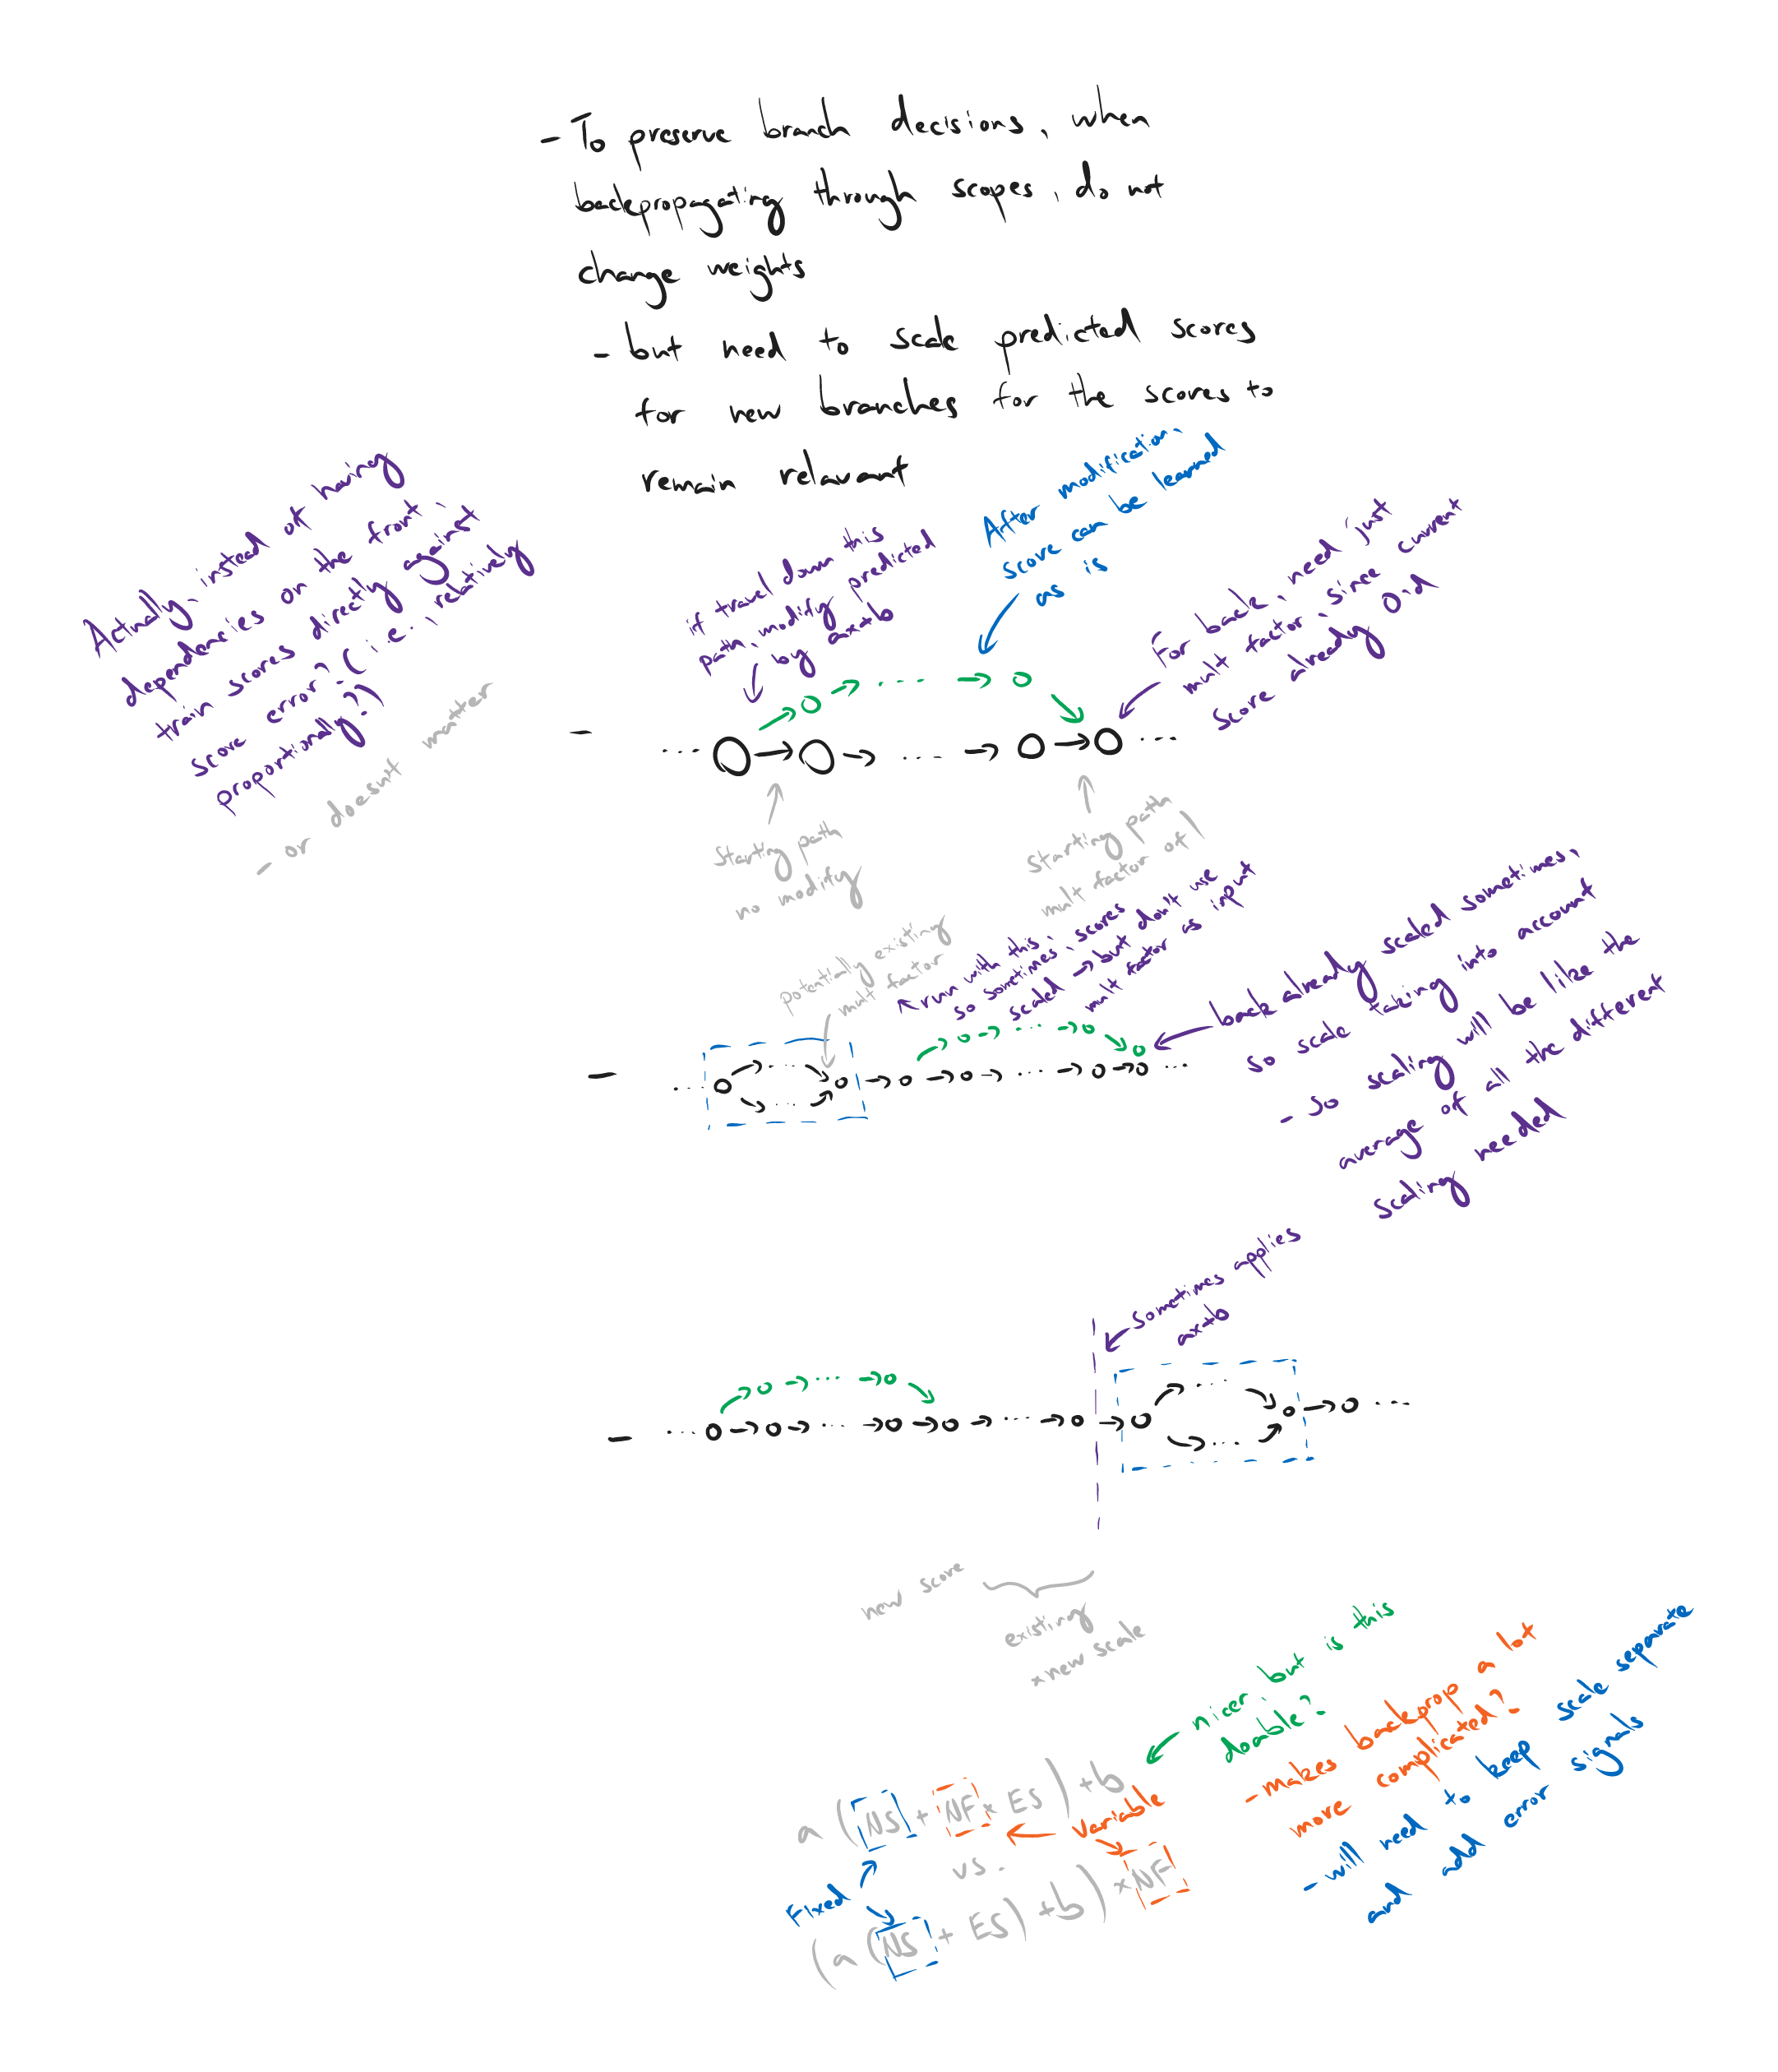 - To preserve branch decisions, when
backpropagating through scopes, do not
change weights
- but need to scale predicted scores
for new branches for the scores to
remain relavant
Actually, instead of having
dependencies on the front,
train scores directly against
score error? (i.e., relatively
proportionally?)
- or doesn't matter
if travel down this
path, modify predicted
by ax+b
After modification,
score can be learned
as is
For back, need just
mult factor, since current
score already
Starting path
no modify
Starting path
mult factor of 1
potentially existing
mult factor
run with this,
so sometimes, scores
scaled → but don't use
mult factor as input
back already scaled sometimes,
so scale taking into account
- so scaling will be like the
average of all the different
scaling needed
Sometimes applies
ax+b
new score
existing
× new scale
nicer, but is this
doable?
- makes backprop a lot
more complicated?
- will need to keep scale separate
and add error signals
a (NS + NF × ES) + b
Variable
vs.
Fixed
(a (NS + ES) + b) × NF